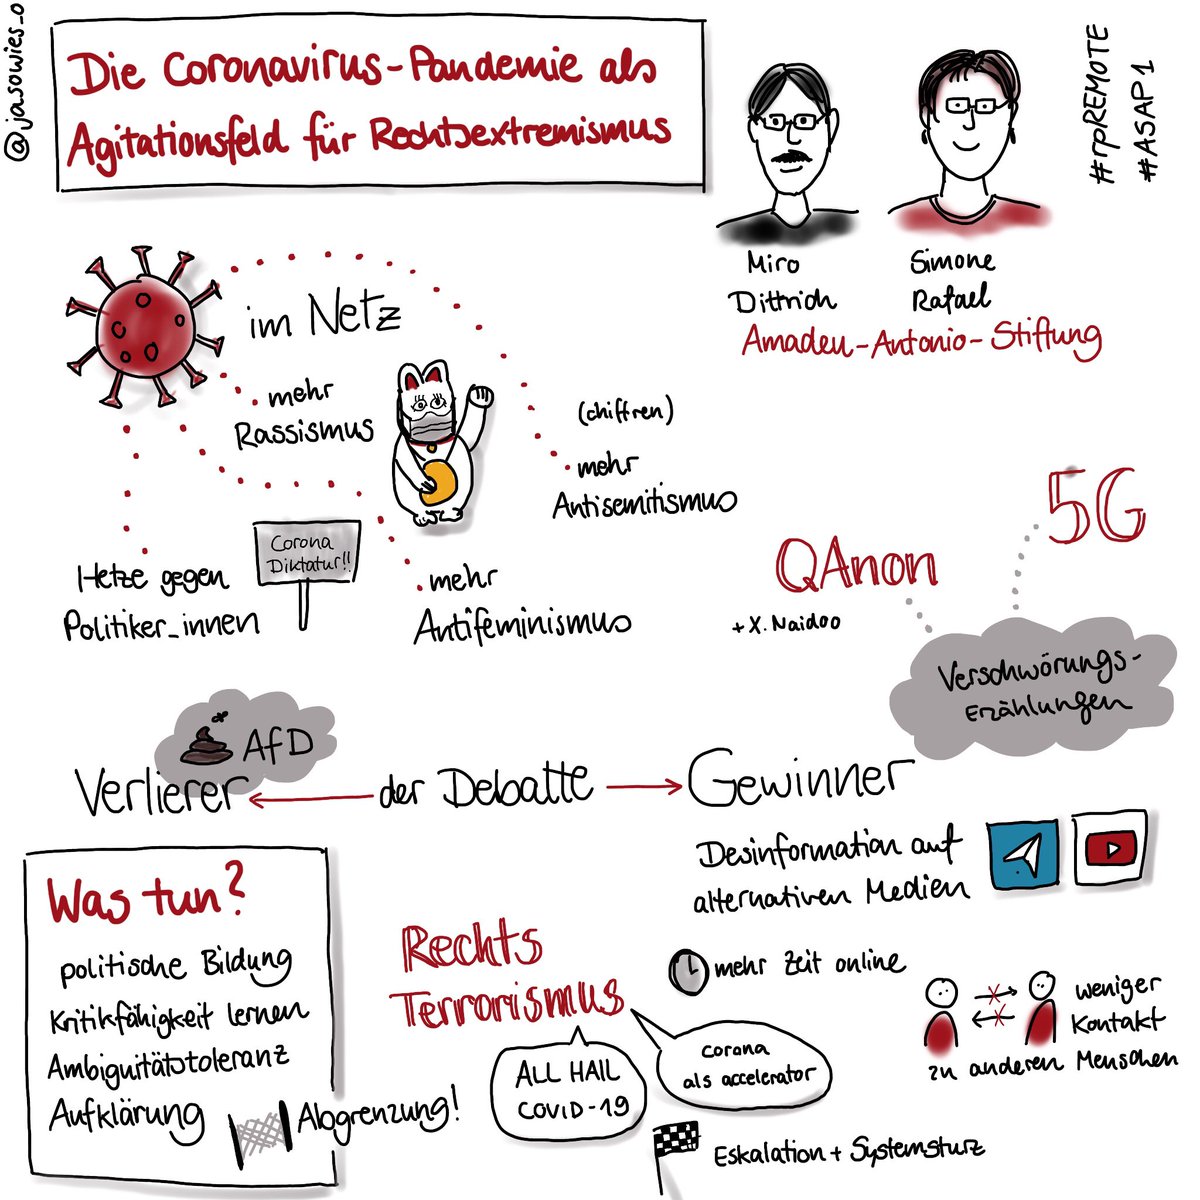 @jasowies_o
Die Coronavirus-Pandemie als
Agitationsfeld für Rechtsextremismus
#rpREMOTE
#ASAP1
Miro
Dittrich
Simone
Rafael
Amadeu-Antonio-Stiftung
im Netz
mehr
Rassismus
(chiffren)
mehr
Antisemitismus
Corona
Diktatur!!
Hetze gegen
Politiker_innen
mehr
Antifeminismus
5G
QAnon
+ X. Naidoo
Verschwörungs-
Erzählungen
AfD
Verlierer der Debatte Gewinner
Desinformation auf
alternativen Medien
Was tun?
politische Bildung
Kritikfähigkeit lernen
Ambiguitätstoleranz
Aufklärung
Abgrenzung!
Rechts
Terrorismus
mehr Zeit online
weniger
Kontakt
zu anderen Menschen
ALL HAIL
COVID-19
corona
als accelerator
Eskalation + Systemsturz